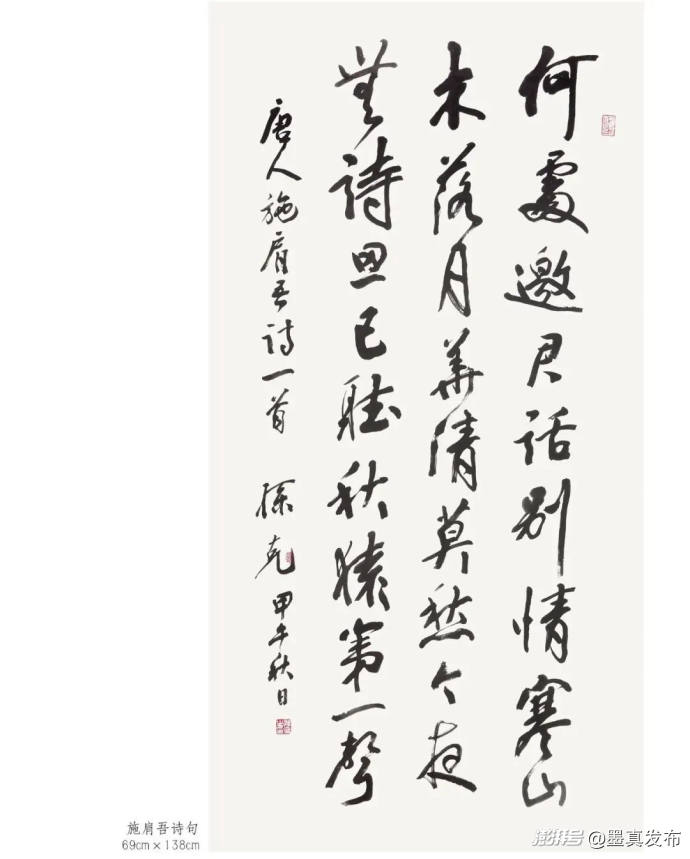 何處邀君話別情寒山
木落月華清莫愁今夜
無詩思已聽秋猿第一聲
唐人施肩吾诗一首 探克 甲午秋日
施肩吾诗句
69cm×138cm
澎湃号 @墨真发布